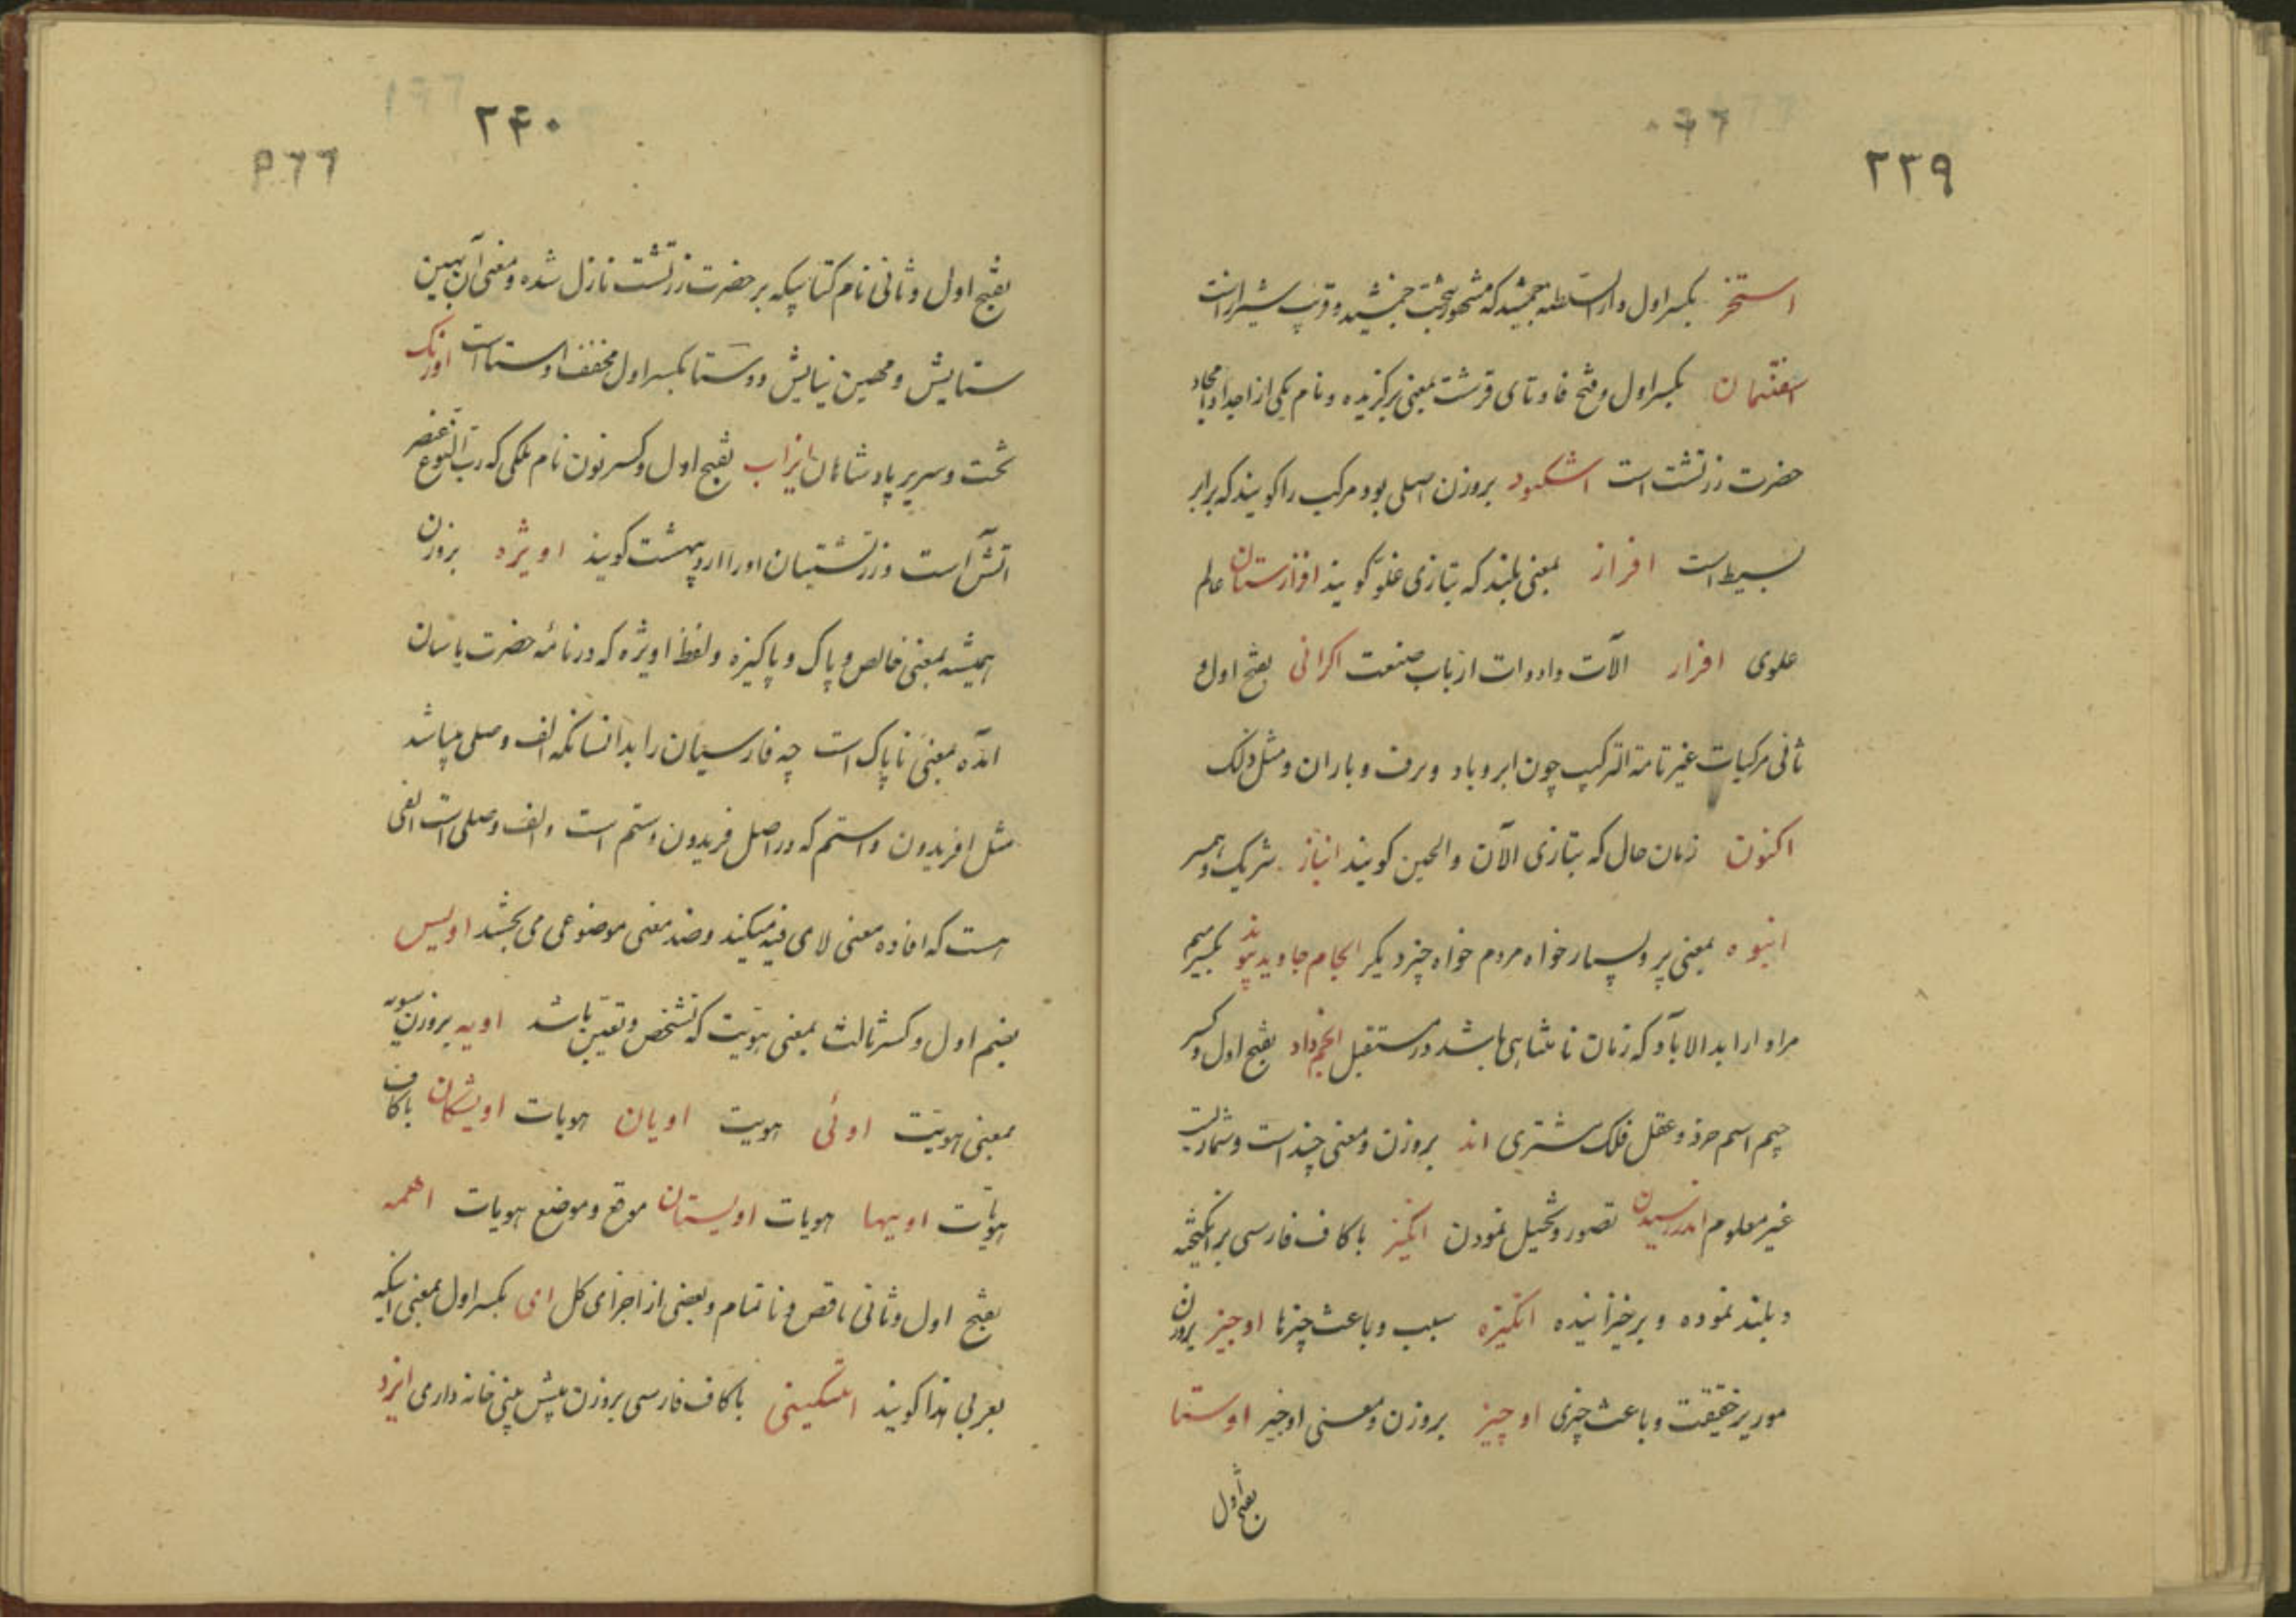 ۲۳۹
استخر بکسر اول دار السلطنه جمشید که مشهور بتخت جمشید و قریب شیراز است
اسفنتمان بکسر اول و فتح فا و تای قرشت بمعنی برگزیده و نام یکی از اجداد امجاد
حضرت زرتشت است اشکیود بروزن اصلی بود مرکب را کویند که برابر
بسیط است افراز بمعنی بلند که بتازی علو گویند افرازستان عالم
علوی افزار الآت و ادوات ارباب صنعت اکرانی بفتح اول و
ثانی مرکبات غیر تامة الترکیب چون ابر و باد و برف و باران و مثل ذلک
اکنون زمان حال که بتازی الآن و الحین کویند انباز شریک و همسر
انبوه بمعنی پر و بسیار خواه مردم خواه چیز دیگر انجام جاوید پیوند بکسر میم
مراد از ابد الاباد که زمان نامتناهی باشد در مستقبل انجمداد بفتح اول و کسر
جیم اسم خرد و عقل فلک مشتری اند بروزن و معنی چند است و شماریست
غیر معلوم اندرسیدن تصور و تخیل نمودن انگیز با کاف فارسی برانگیخته
و بلند نموده و برخیزاننده انگیزه سبب و باعث چیزها اوجیز بروزن
مویز حقیقت و باعث چیزی اوچیز بروزن و معنی اوجیز اوستا
بفتح اول
۲۴۰
بفتح اول و ثانی نام کتابیکه بر حضرت زرتشت نازل شده و معنی آن بهین
ستایش و مهین نیایش و وستا بکسر اول مخفف اوستا است اورنک
تخت و سریر پادشاهان انزاب بفتح اول و کسر نون نام ملکی که رب النوع عنصر
آتش است و زرتشتیان او را اردیبهشت کویند اویژه بروزن
همیشه بمعنی خالص و پاک و پاکیزه و لفظ اویژه که در نامه حضرت یاسان
آمده بمعنی ناپاک است چه فارسیان را بدانسانکه الف وصل میباشد
مثل افریدون و استم که در اصل فریدون و ستم است و الف وصلی است الفی
هست که افاده معنی لای نفی میکند و ضد معنی موضوعی می بخشد اویس
بضم اول و کسر ثالث بمعنی هویت که تشخص و تعین باشد اویه بروزن سویه
بمعنی هویت اوئی هویت اویان هویات اویشکان با کاف
هویات اویها هویات اویستان موقع و موضع هویات اهمه
بفتح اول و ثانی ناقص و ناتمام و بعضی از اجزای کل ای بکسر اول بمعنی اینکه
بعربی هذا کویند ایشکینی با کاف فارسی بروزن پیش بینی خانه داری ایزد